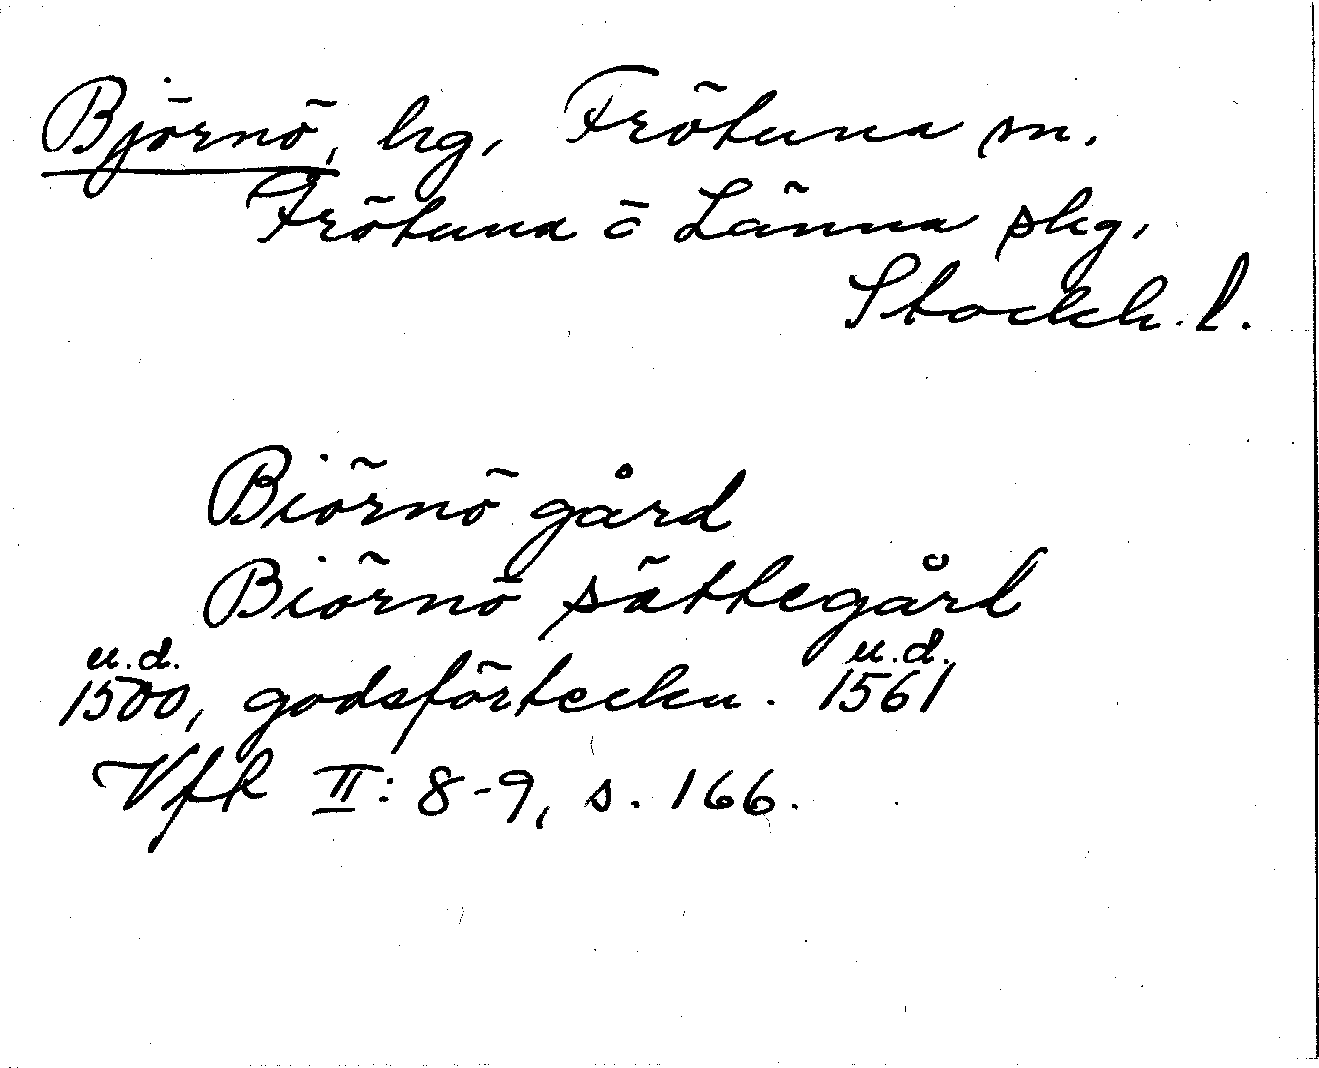 Björnö, hg, Frötuna sn.
Frötuna o Länna skg,
Stockh. l.
Biörnö gård
Biörnö sättegård
u.d. u.d.
1500, godsförteckn. 1561
Vfr II: 8-9, s. 166.